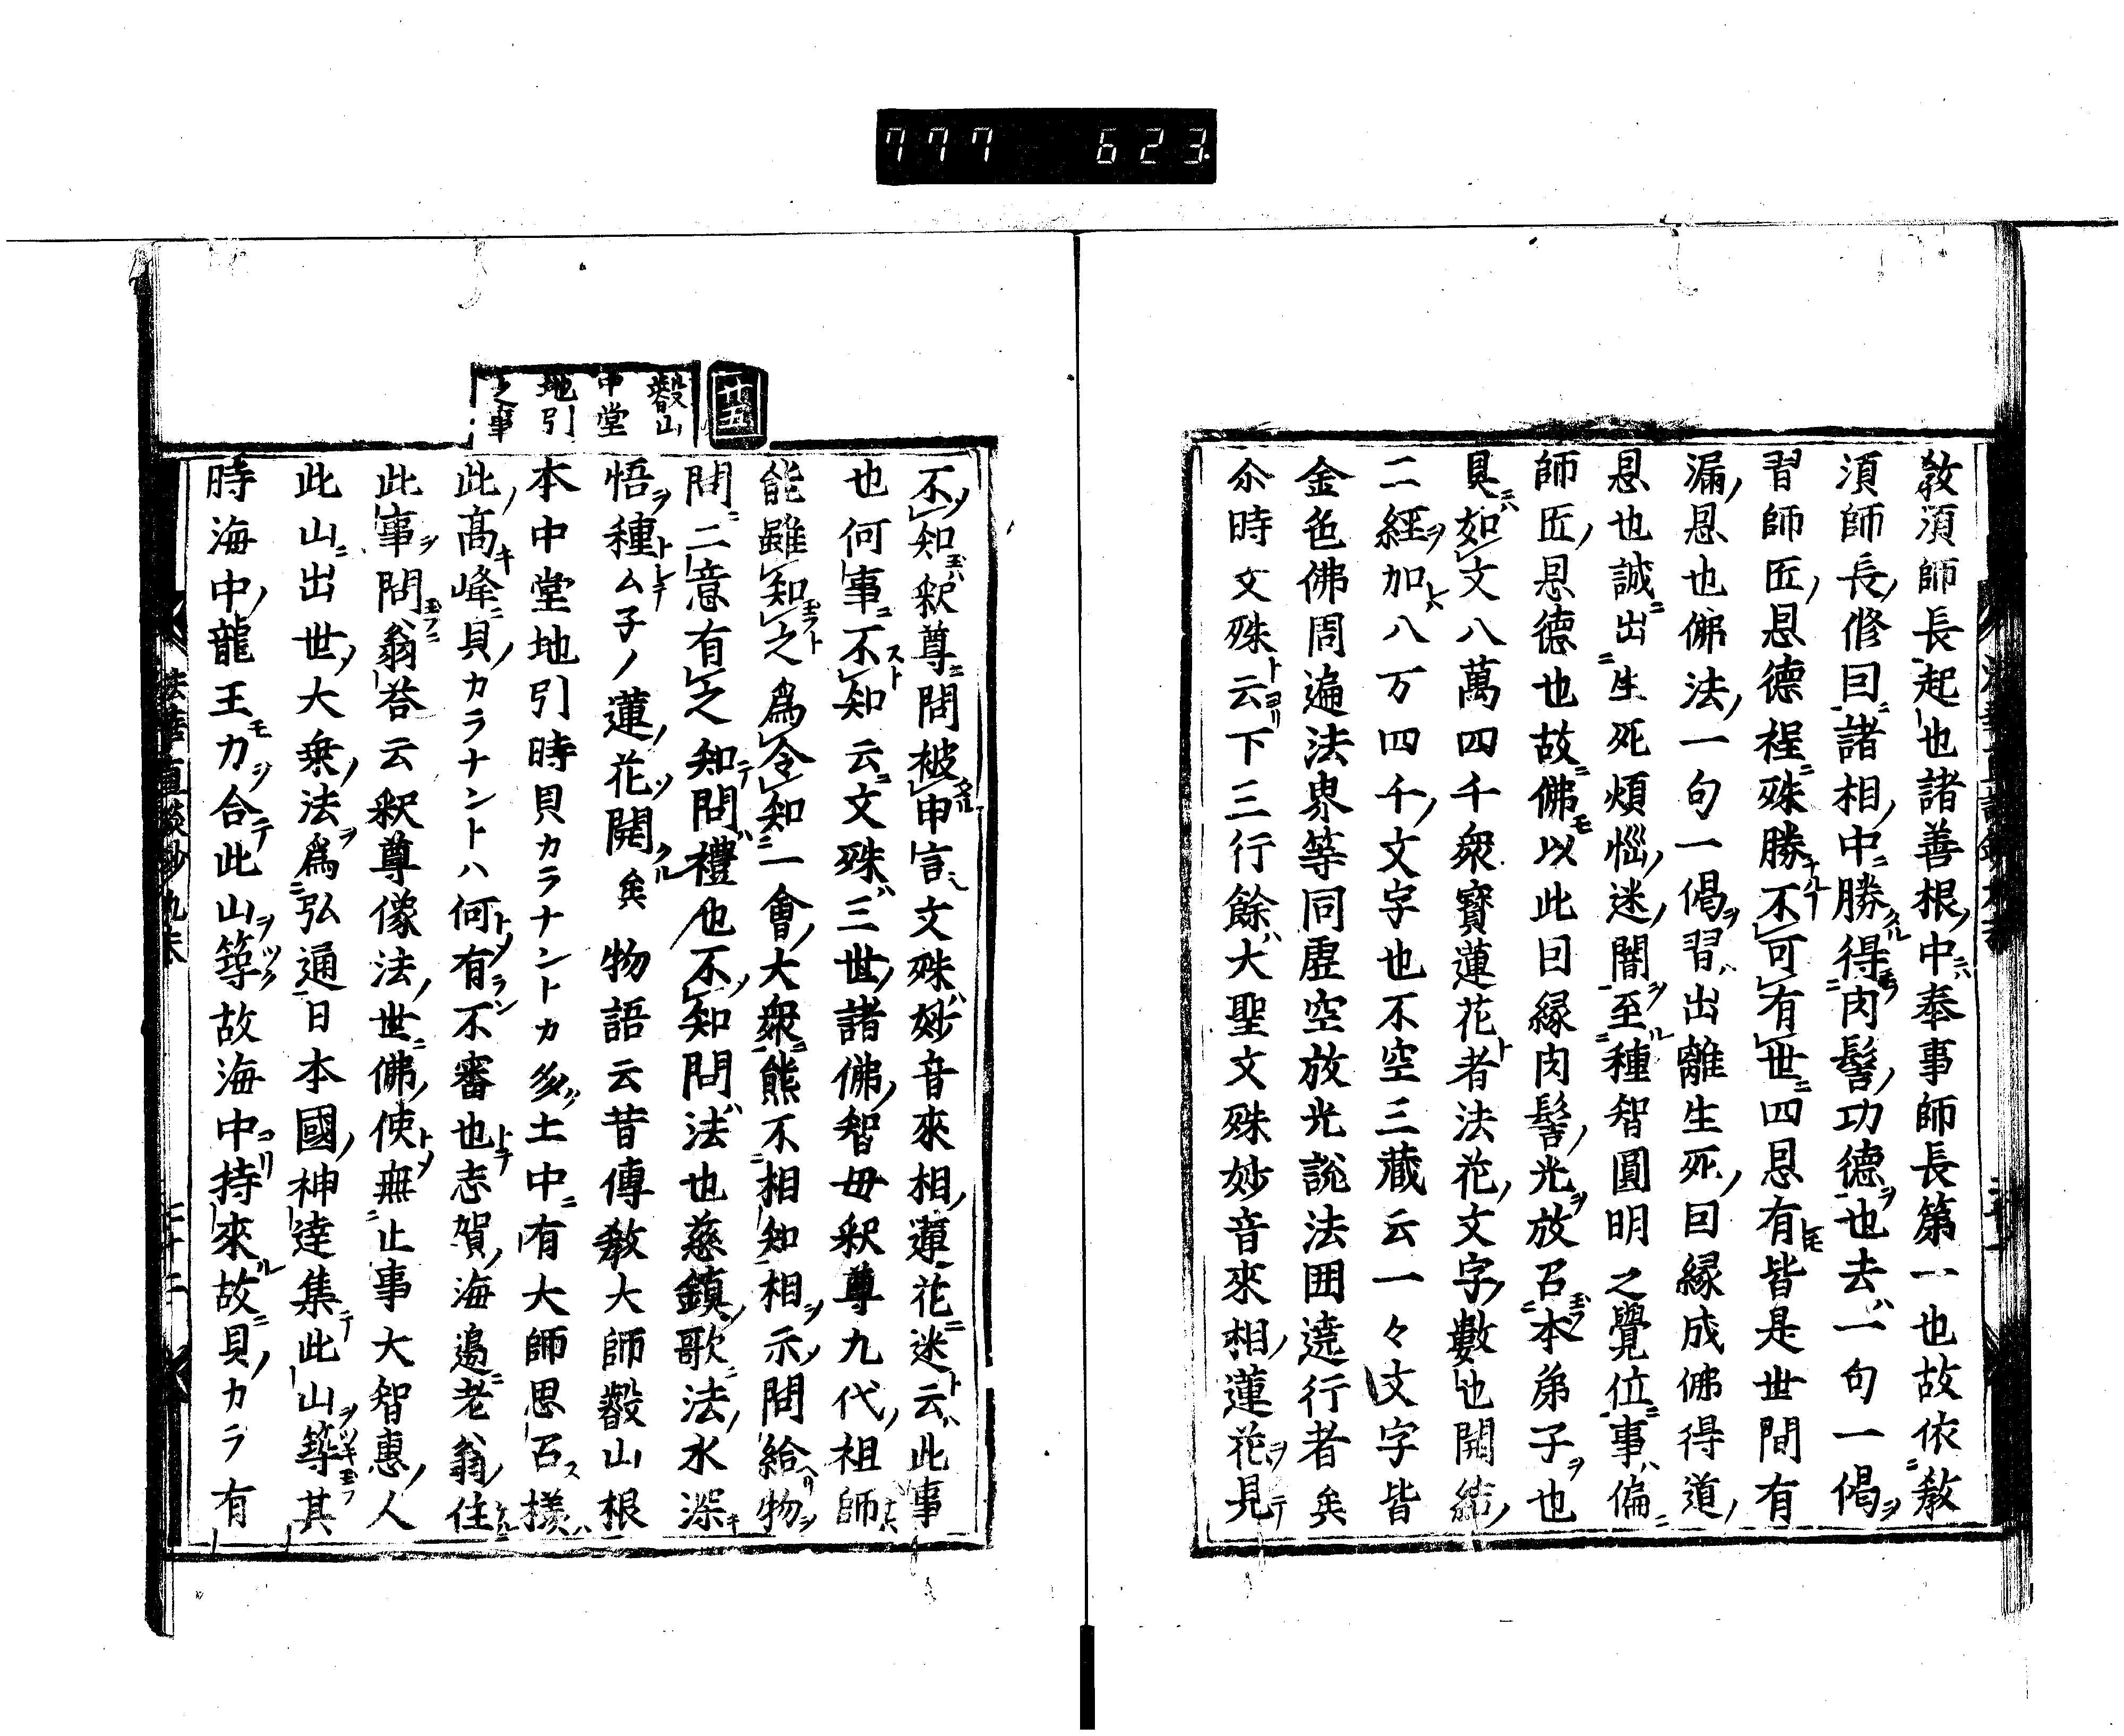 777 623
教須師長起也諸善根中奉事師長第一也故依教
須師長修曰諸相中勝得肉髻功德也去一句一偈
習師匠恩德程殊勝不可有世四恩有皆是世間有
漏恩也佛法一句一偈習出離生死因縁成佛得道
恩也誠出生死煩惱迷闇至種智圓明之覺位事偏
師匠恩德也故佛以此因縁肉髻光放召本弟子也
具如文八萬四千衆寳蓮花者法花文字數也開結
二經加八万四千文字也不空三藏云一々文字皆
金色佛周遍法界等同虚空放光説法囲遶行者矣
尒時文殊云下三行餘大聖文殊妙音來相蓮花見
廿五
叡山
中堂
地引
之事
不知釈尊問被申言文殊妙音來相蓮花迷云此事
也何事不知云文殊三世諸佛智母釈尊九代祖師
能雖知之爲令知一會大衆熊不相知相示問給物
問二意有之知問禮也不知問法也慈鎮歌法水深
悟種ム子ノ蓮花開矣 物語云昔傳教大師叡山根
本中堂地引時貝カラナントカ多土中有大師思召様
此高峰貝カラナントハ何有不審也志賀海邉老翁住
此事問翁荅云釈尊像法世佛使無止事大智惠人
此山出世大乗法爲弘通日本國神達集此山築其
時海中龍王力合此山築故海中持來故貝カラ有
法華直談鈔九末